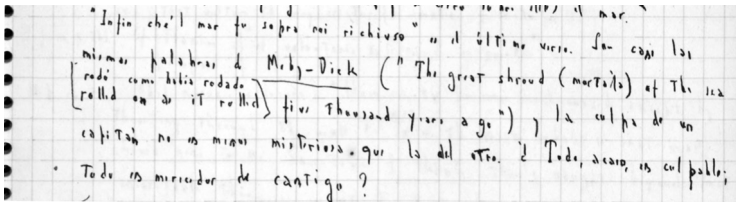 "Infin che'l mar fu sopra noi richiuso" es el último verso. Son casi las
mismas palabras de Moby-Dick ("The great shroud (mortaja) of the sea
[rodó como había rodado
rolled on as it rolled] five thousand years ago") y la culpa de un
capitán no es menos misteriosa que la del otro. ¿Todo, acaso, es culpable;
Todo es merecedor de castigo?